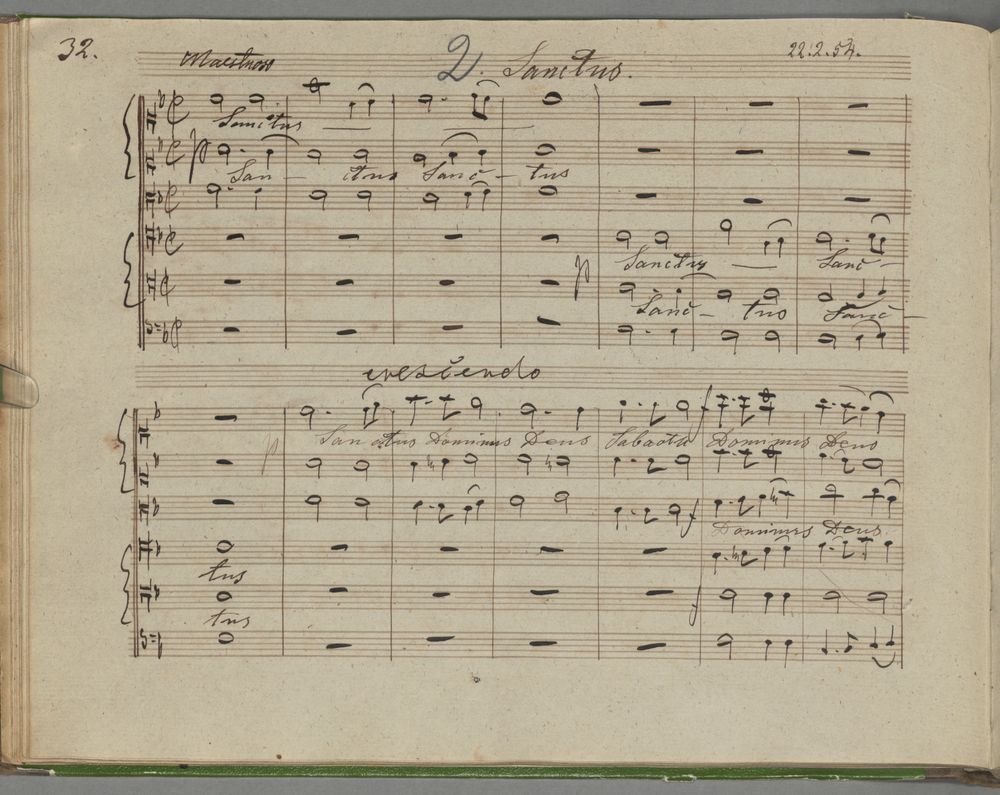 32. Maestoso 2. Sanctus. 22.2.54.
Sanctus
p San - ctus Sanc - tus
Sanctus Sanc -
p Sanc - tus Sanc -
crescendo
Sanctus Dominus Deus Sabaoth f Dominus Deus
p
f Dominus Deus
tus
f
tus